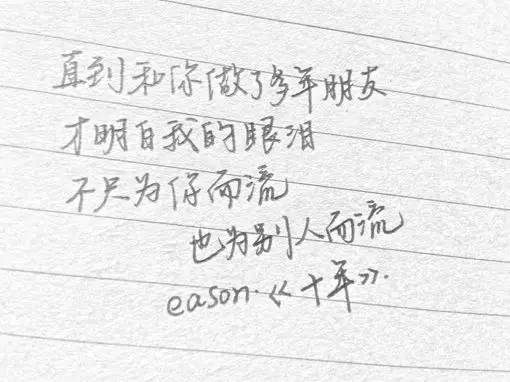 直到和你做了多年朋友
才明白我的眼泪
不只为你而流
也为别人而流
eason.《十年》.